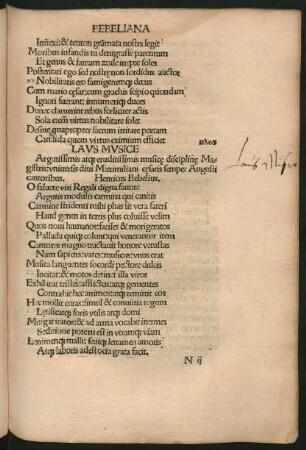 BEBELIANA
Inficeri: & teuton grãmata nostra legit
Moribus infandis tu denigrasse parentum
Et genus & famam zoile inepte soles
Posteritati ego sed nostre non sordidus auctor
Nobilitatis ero famigerumq; decus
Cum mario cesar cum grachis scipio quondam
Ignoti fuerant: innumeriq; duces
Donec claruerint rebus foeliciter actis
Sola etenim virtus nobilitare solet
Desine quapropter sacrum irritare poetam
Candida quem virtus eximium efficiet
LAVS MVSICE
Argutissimis atq; eruditissimis musice discipline Ma
gistris: vniuersis diui Maximiliani cesaris semper Augusti
cantoribus. Henricus Bebelius.
O saluete viri Regali digna fauore:
Argutis modulis carmina qui canitis
Carmine stridenti mihi phas sit vera fateri
Haud genus in terris plus coluisse velim
Quos noui humanos: faciles & morigeratos
Pallada quiq; colunt: qui venerantur item
Cantores magno tractauit honore vetustas
Nam sapiens: vates: musicus: vnus erat
Musica languentes socordi pectore dulcis
Incitat: & motos detinet illa viros
Exhilarat tristes: afflictos: atq; gementes
Contrahit hec animos: atq; remittit eos
Hec mollit curas: simul & conuiuia regum
Letificat: q; foris vtilis atq; domi
Mitigat iratos: & ad arma vocabit inermes
Seditione potens est in vtramq; viam
Lenimenq; malis: sitiq; leuamen amoris
Atq; laboris adest ocia grata facit.
N ij